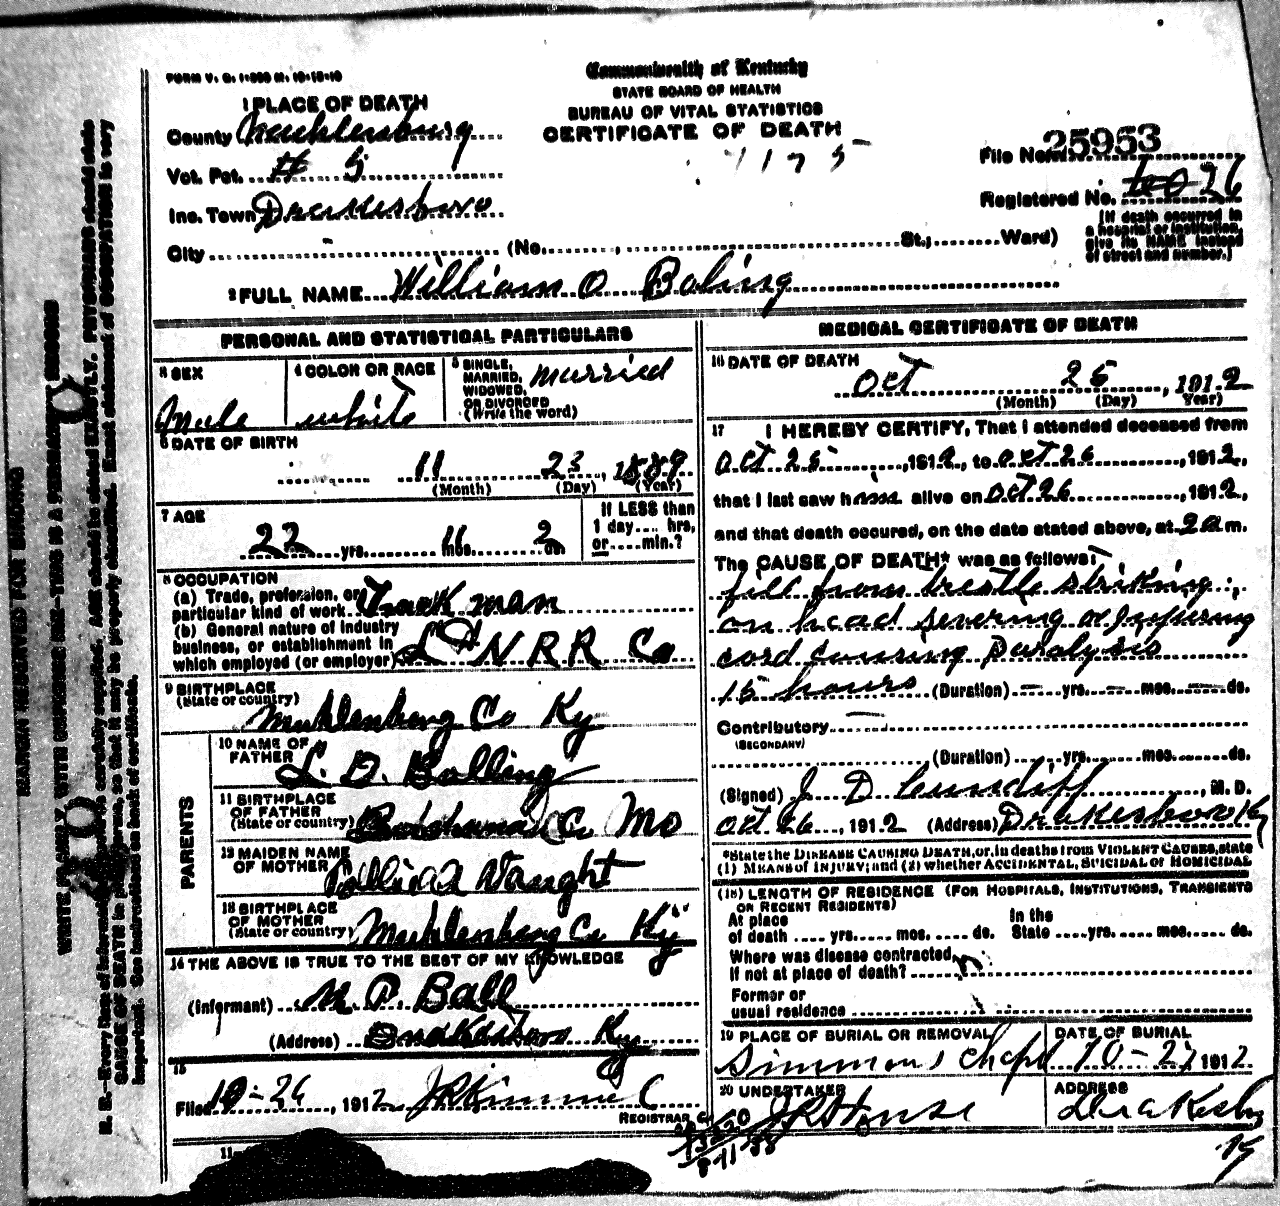 FORM V. S. 1-
Commonwealth of Kentucky
STATE BOARD OF HEALTH
BUREAU OF VITAL STATISTICS
CERTIFICATE OF DEATH
1175
1 PLACE OF DEATH
County Muhlenburg
Vot. Pct. # 5
Inc. Town Drakesboro
City (No. , St.; Ward)
File No. 25953
Registered No. 26
(If death occurred in
a hospital or institution,
give its NAME instead
of street and number.)
2 FULL NAME William O Boling
PERSONAL AND STATISTICAL PARTICULARS
3 SEX
Male
4 COLOR OR RACE
white
5 SINGLE,
MARRIED,
WIDOWED,
OR DIVORCED
(Write the word)
married
6 DATE OF BIRTH
11 23, 1889
(Month) (Day) (Year)
7 AGE
22 yrs. 11 mos. 2 ds
If LESS than
1 day.... hrs,
or.....min.?
8 OCCUPATION
(a) Trade, profession, or
particular kind of work Track man
(b) General nature of industry
business, or establishment in
which employed (or employer) L & N R R Co
9 BIRTHPLACE
(State or country)
Muhlenberg Co Ky
PARENTS
10 NAME OF
FATHER L. D. Bolling
11 BIRTHPLACE
OF FATHER
(State or country) Co Mo
12 MAIDEN NAME
OF MOTHER Vaught
13 BIRTHPLACE
OF MOTHER
(State or country) Muhlenberg Co Ky
14 THE ABOVE IS TRUE TO THE BEST OF MY KNOWLEDGE
(Informant) M. P. Ball
(Address) Drakesboro Ky
15
Filed 10-26, 1912
REGISTRAR
MEDICAL CERTIFICATE OF DEATH
16 DATE OF DEATH
Oct 25, 1912
(Month) (Day) Year)
17 I HEREBY CERTIFY, That I attended deceased from
Oct 25, 1912, to Oct 26, 1912,
that I last saw him alive on Oct 26, 1912,
and that death occured, on the date stated above, at 2 a m.
The CAUSE OF DEATH* was as follows:
fell from trestle striking
on head severing or injuring
cord causing Paralysis
15 hours (Duration) yrs. mos. ds.
Contributory
(SECONDARY)
(Duration) yrs. mos. ds.
(Signed) J D Cundiff, M. D.
Oct 26, 1912 (Address) Drakesboro Ky
*State the DISEASE CAUSING DEATH, or, in deaths from VIOLENT CAUSES, state
(1) MEANS OF INJURY; and (2) whether ACCIDENTAL, SUICIDAL or HOMICIDAL
(18) LENGTH OF RESIDENCE (FOR HOSPITALS, INSTITUTIONS, TRANSIENTS
OR RECENT RESIDENTS)
At place
of death .... yrs..... mos. .... ds.
In the
State ....yrs.....mos......ds.
Where was disease contracted,
if not at place of death?
Former or
usual residence
19 PLACE OF BURIAL OR REMOVAL
Simmons Chapel
DATE OF BURIAL
10-27 1912
20 UNDERTAKER
ADDRESS
MARGIN RESERVED FOR BINDING
WRITE PLAINLY, WITH UNFADING INK-THIS IS A PERMANENT RECORD
N. B.-Every item of information should be carefully supplied. AGE should be stated EXACTLY. PHYSICIANS should state
CAUSE OF DEATH in plain terms, so that it may be properly classified. Exact statement of OCCUPATION is very
important. See instructions on back of certificate.